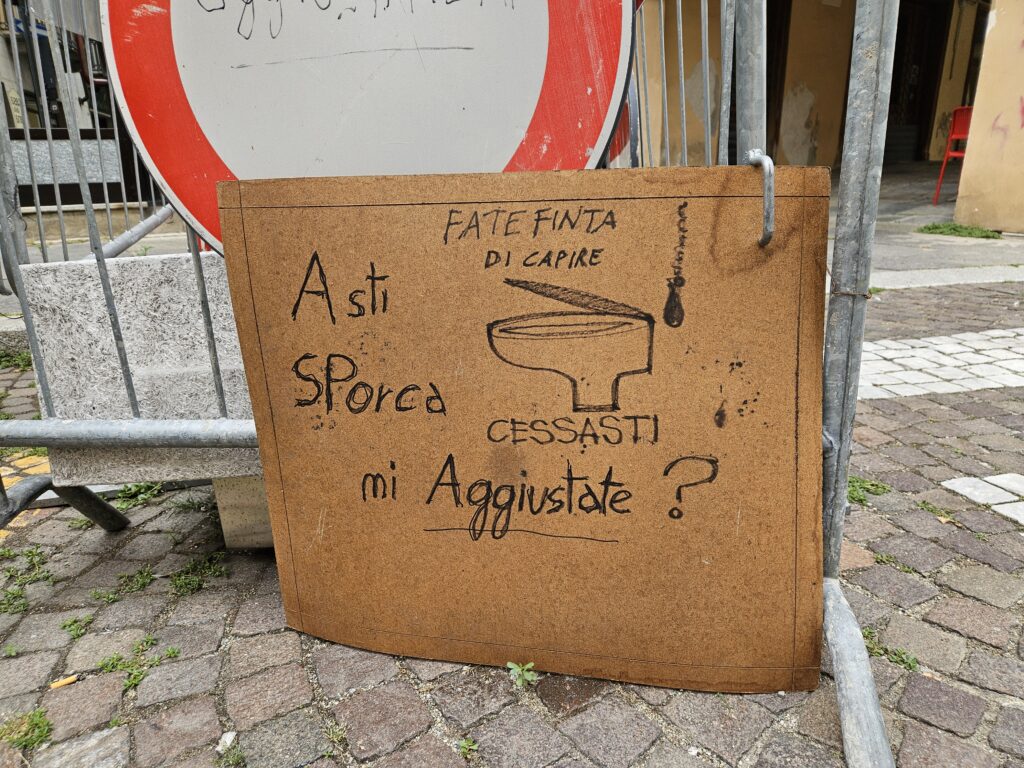 FATE FINTA
DI CAPIRE
Asti
SPorca
CESSASTI
mi Aggiustate ?